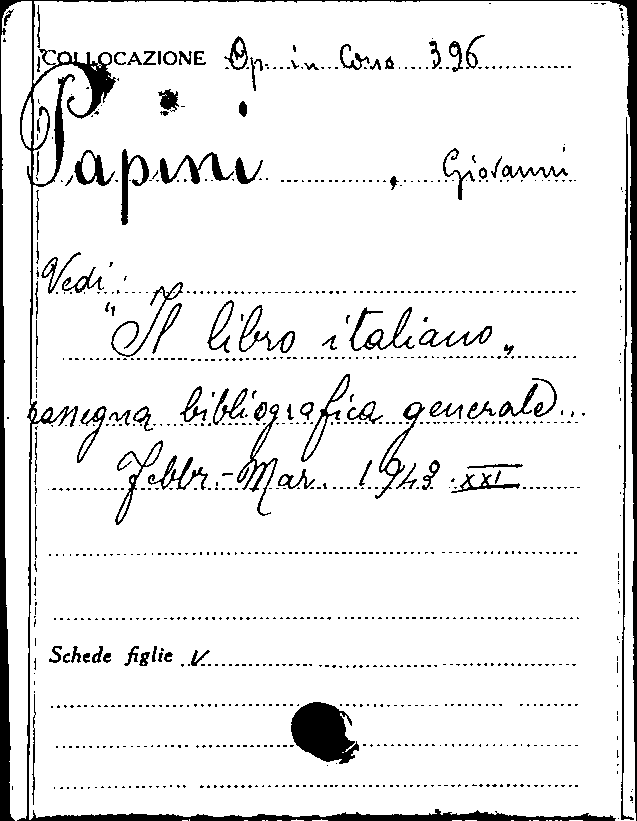 COLLOCAZIONE Op. in Corso 396
Papini, Giovanni
Vedi:
"Il libro italiano„
rassegna bibliografica generale...
Febbr.-Mar. 1943.XXI
Schede figlie V